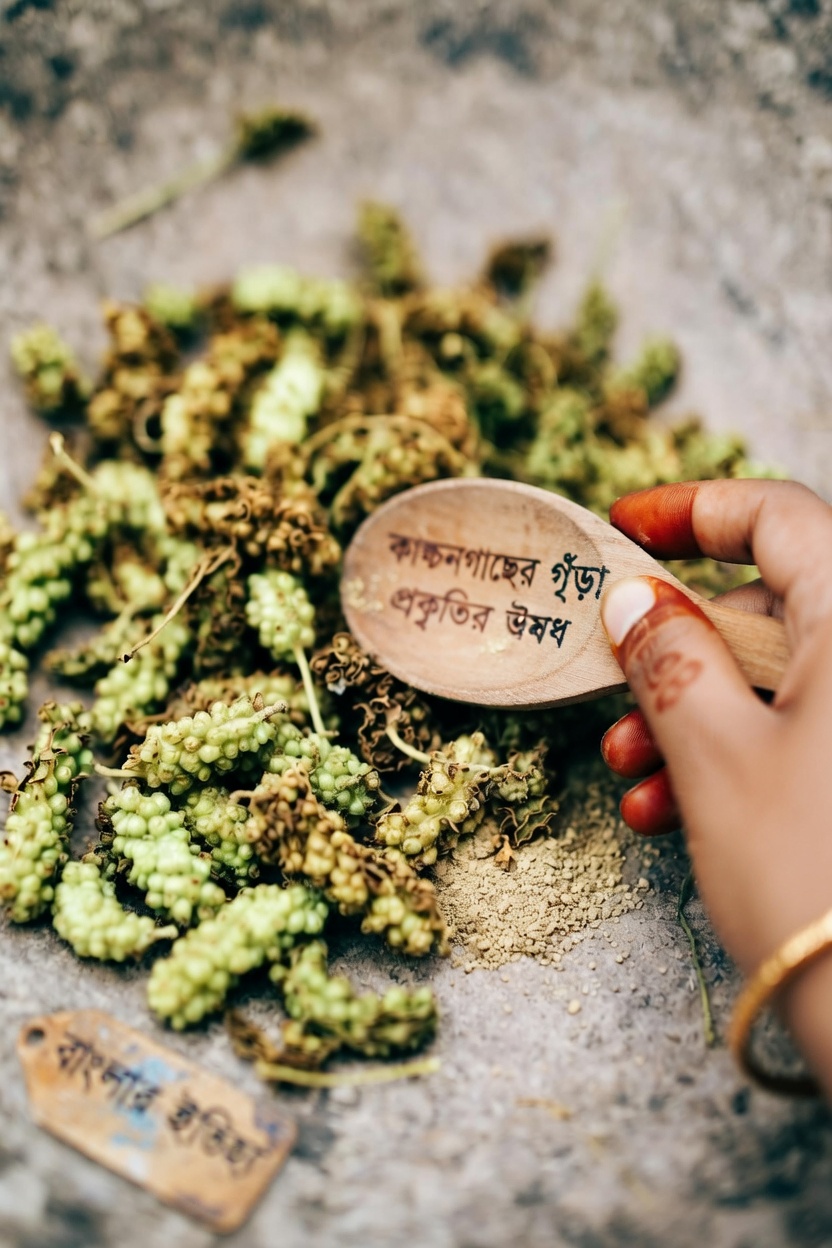 কাঞ্চনগাছের গুঁড়া
প্রকৃতির ঔষধ
বাংলার